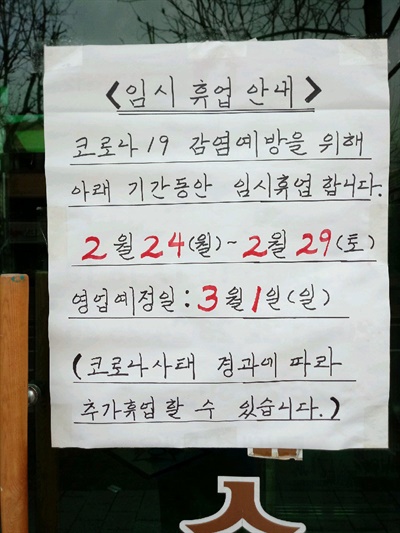 <임시 휴업 안내>
코로나 19 감염예방을 위해
아래 기간동안 임시휴업 합니다.
2월 24(월)~2월 29(토)
영업예정일: 3월 1일(일)
(코로나사태 경과에 따라
추가휴업 할 수 있습니다.)